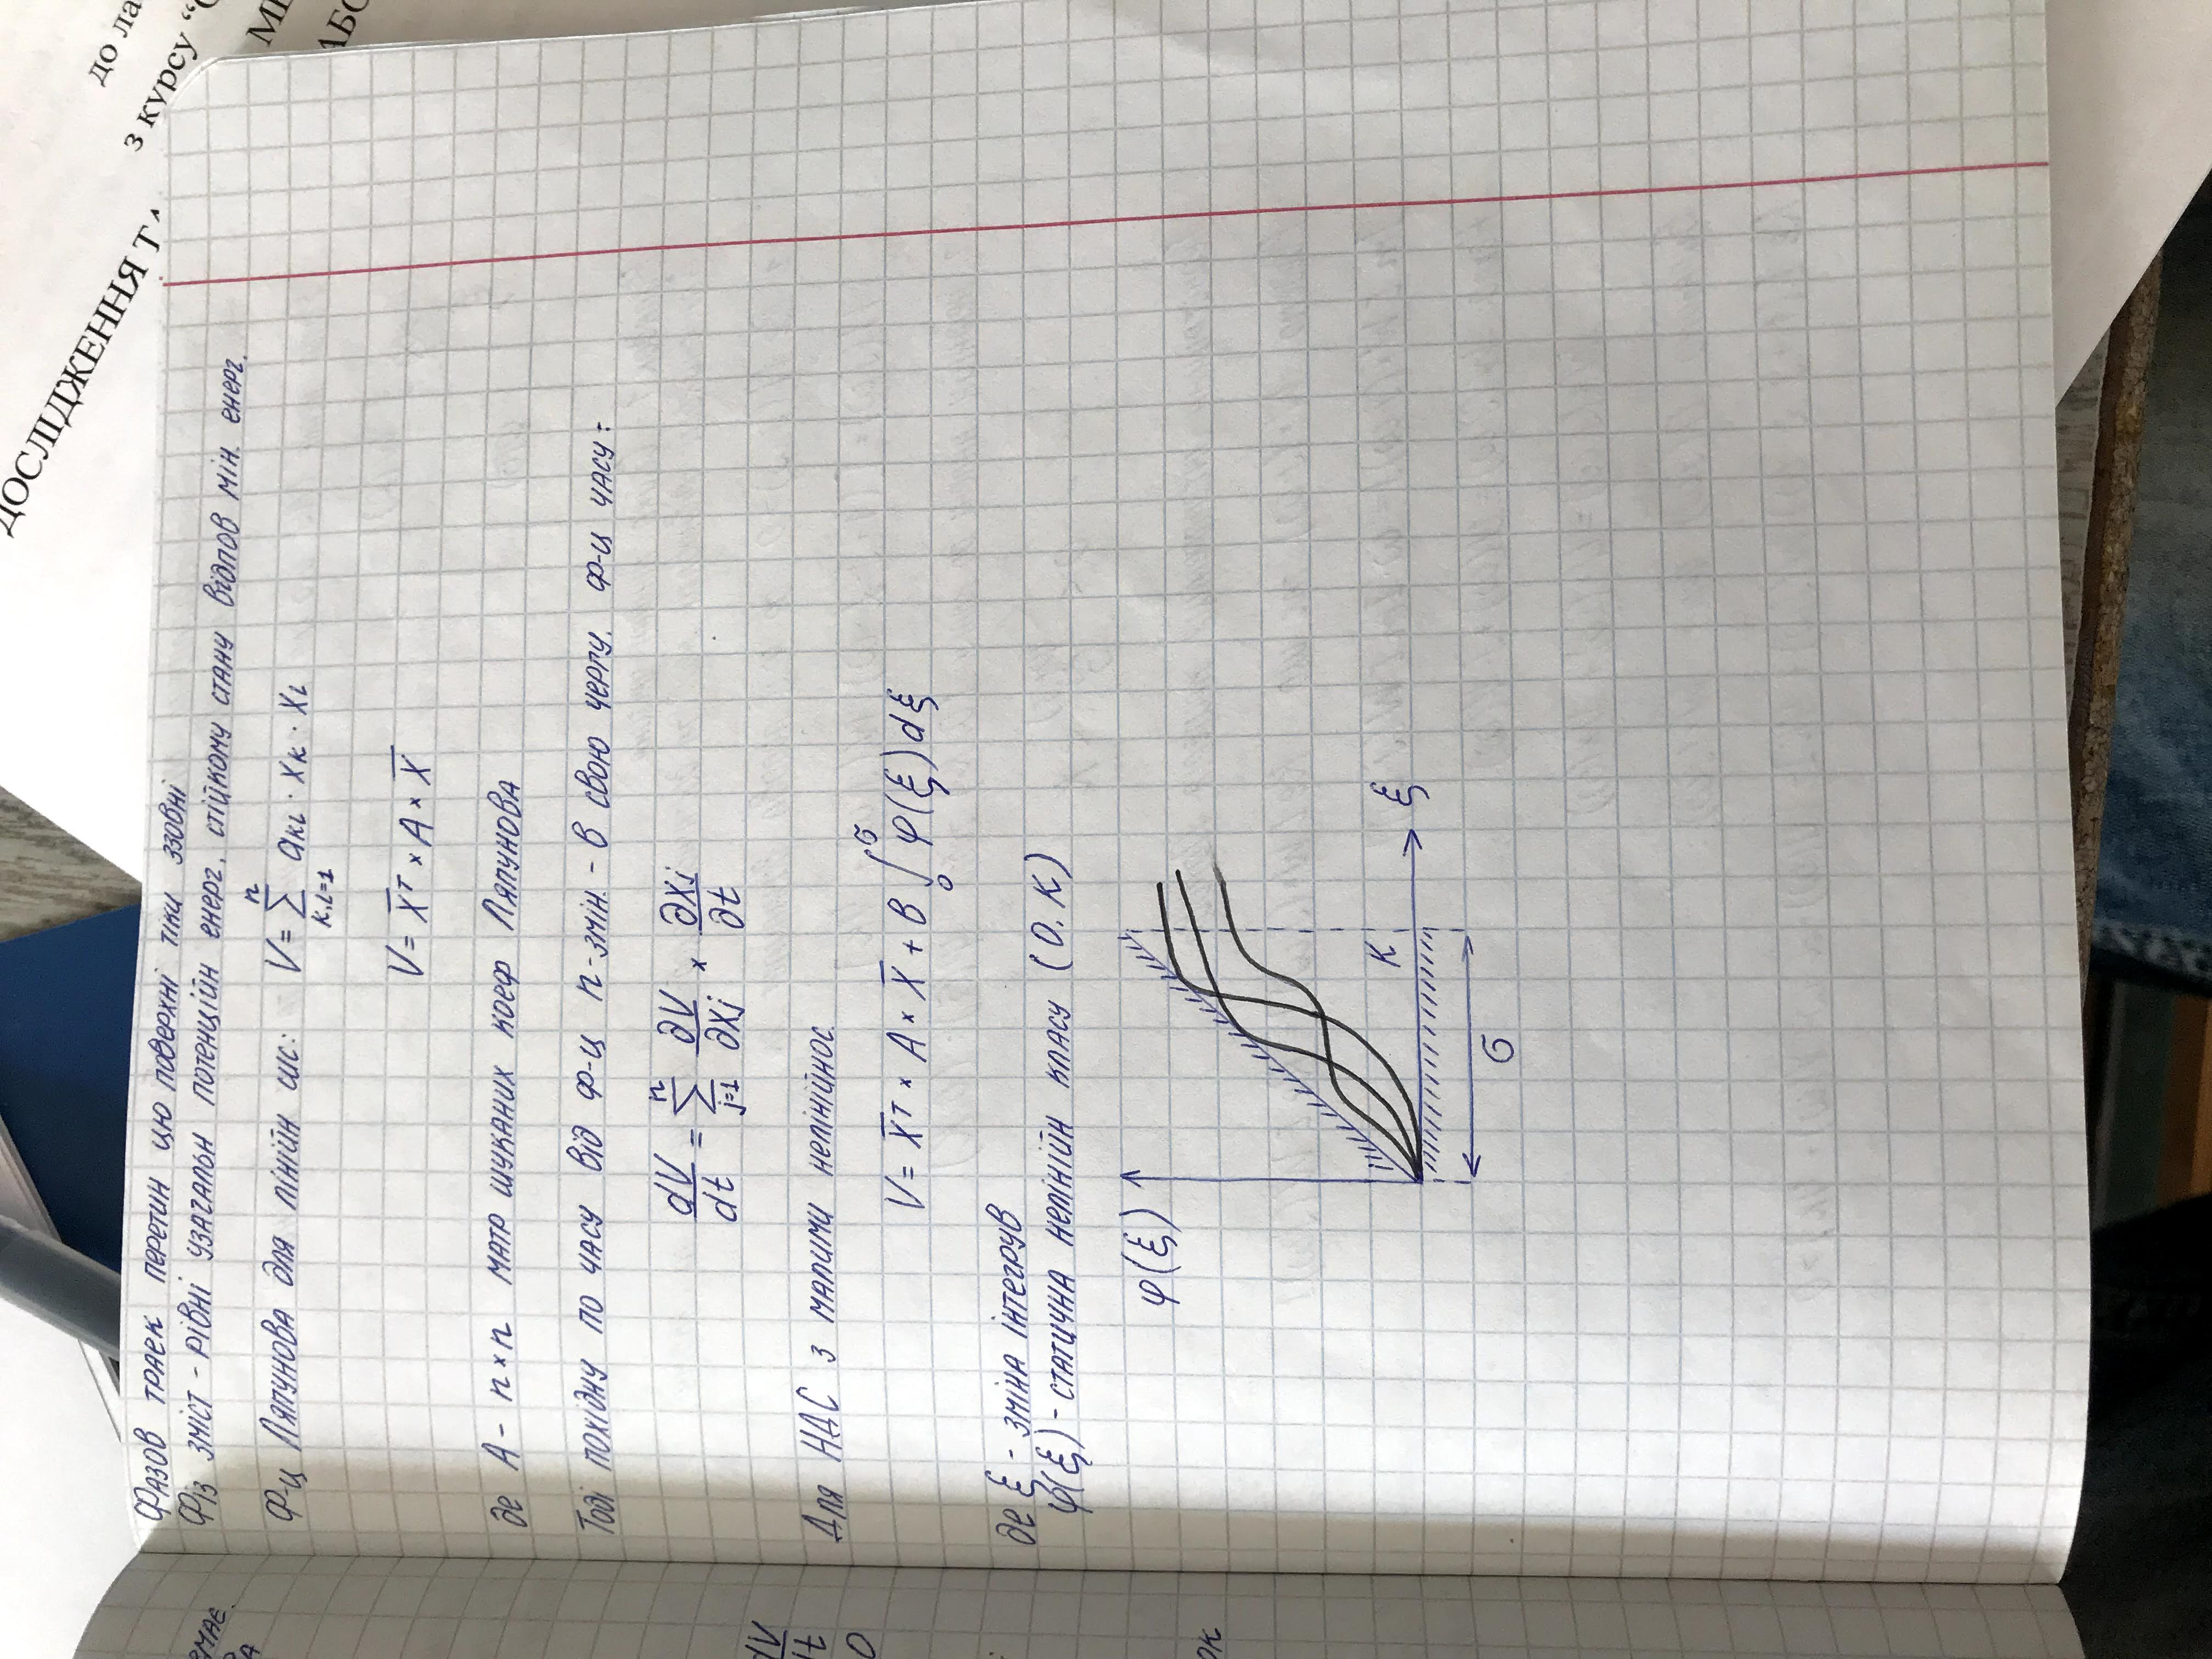 ДОСЛІДЖЕННЯ ТА
до ла
з курсу “
МІ
АБО
ємає.
ва
dV
dt
0
ок
Фазов траєк перетин цю поверхні тіки ззовні
Фіз зміст - рівні узагальн потенційн енерг. стійкому стану відпов мін. енерг.
Ф-ц Ляпунова для лінійн сис: V = \sum_{k,l=1}^{n} a_{kl} · x_k · x_l
V = \overline{X}^T × A × \overline{X}
де A - n×n матр шуканих коеф Ляпунова
Тоді похідну по часу від ф-ц n-змін. - в свою чергу. ф-ц часу:
\frac{dV}{dt} = \sum_{j=1}^{n} \frac{∂V}{∂x_j} × \frac{∂x_j}{∂t}
Для НДС з малими нелінійнос.
V = \overline{X}^T × A × \overline{X} + B \int_0^σ φ(ξ)dξ
де ξ - зміна інтегрув
φ(ξ) - статична нелінійн класу (0. K)
φ(ξ)
K
ξ
σ